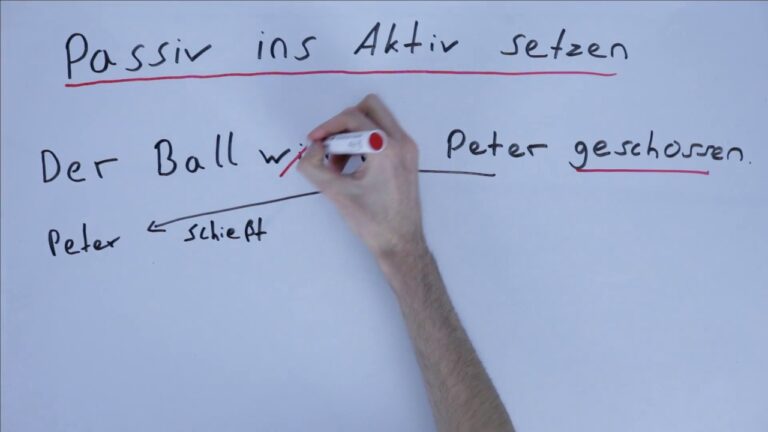 Passiv ins Aktiv setzen
Der Ball Peter geschossen.
Peter schießt